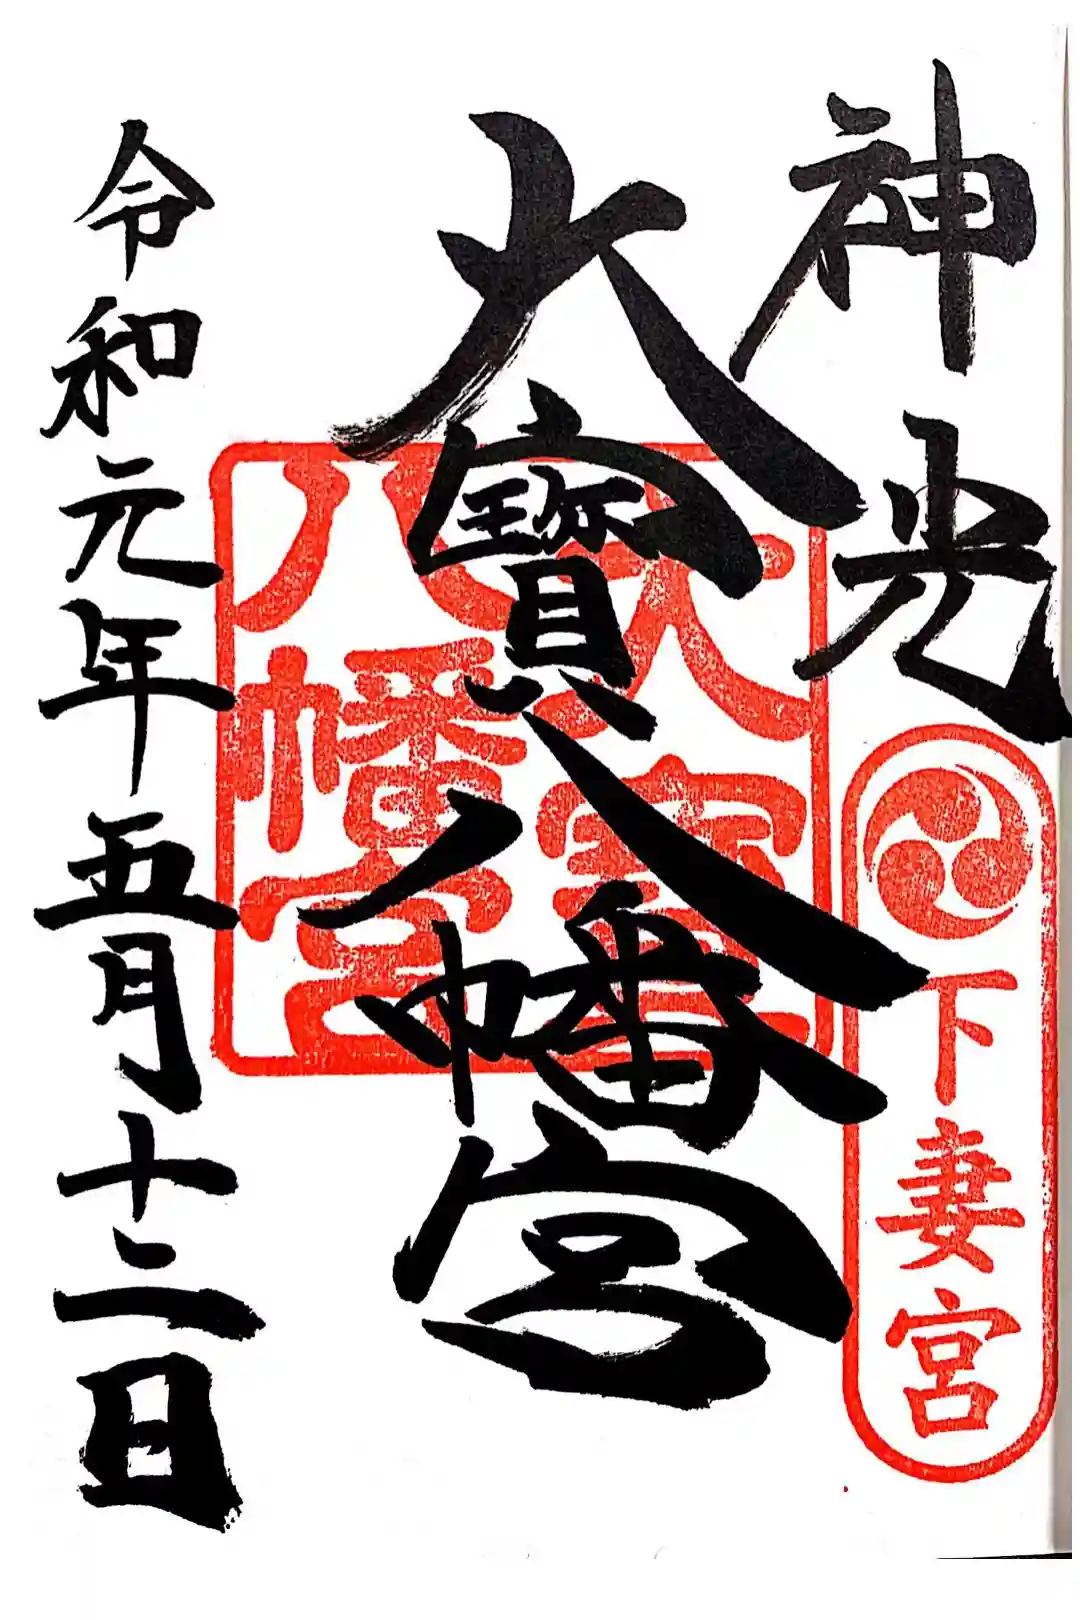 神光
下妻宮
大寶八幡宮
大寶
八幡宮
令和元年五月十二日